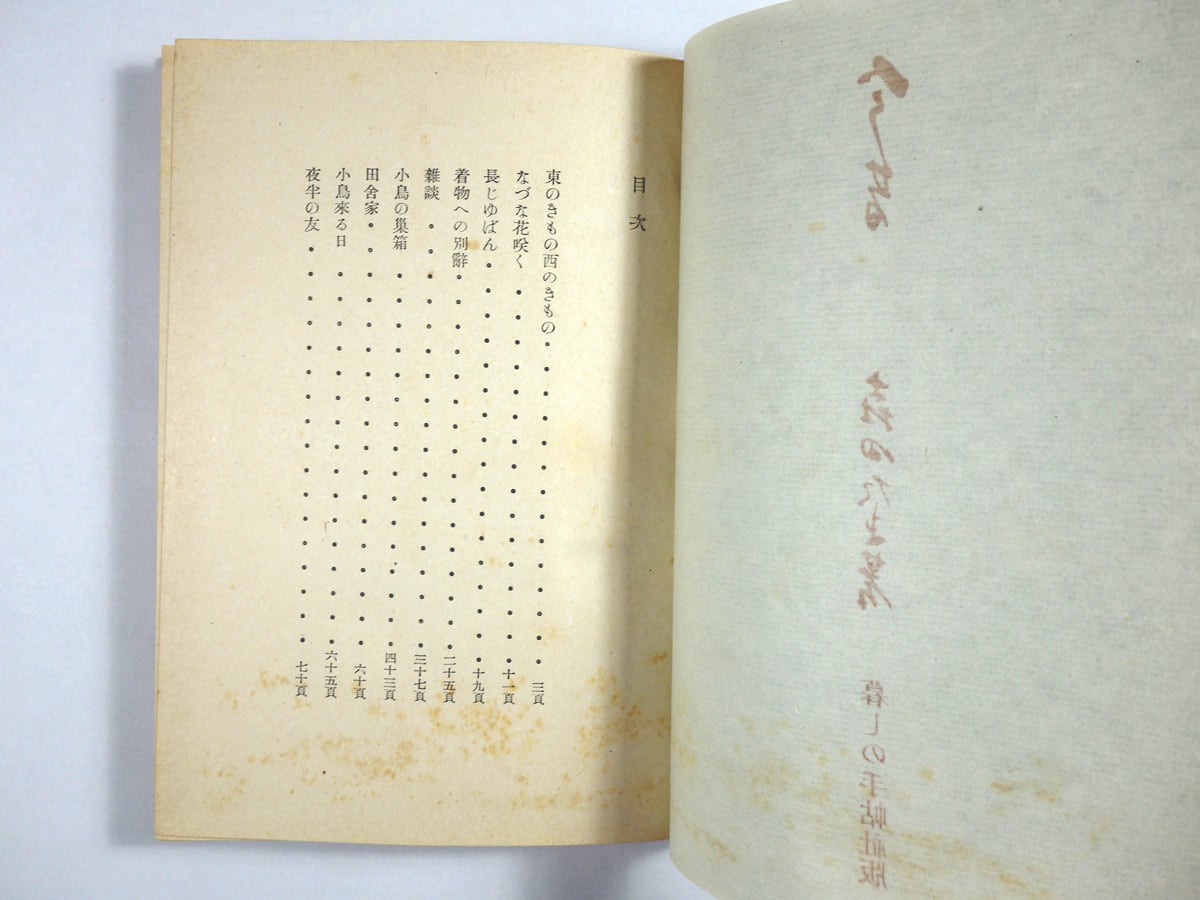 今昔
森田たま著
暮しの手帖社版
目次
東のきもの西のきもの 三頁
なづな花咲く 十一頁
長じゆばん 十九頁
着物への別辭 二十五頁
雜談 三十七頁
小鳥の巢箱 四十三頁
田舍家 六十頁
小鳥來る日 六十五頁
夜半の友 七十頁